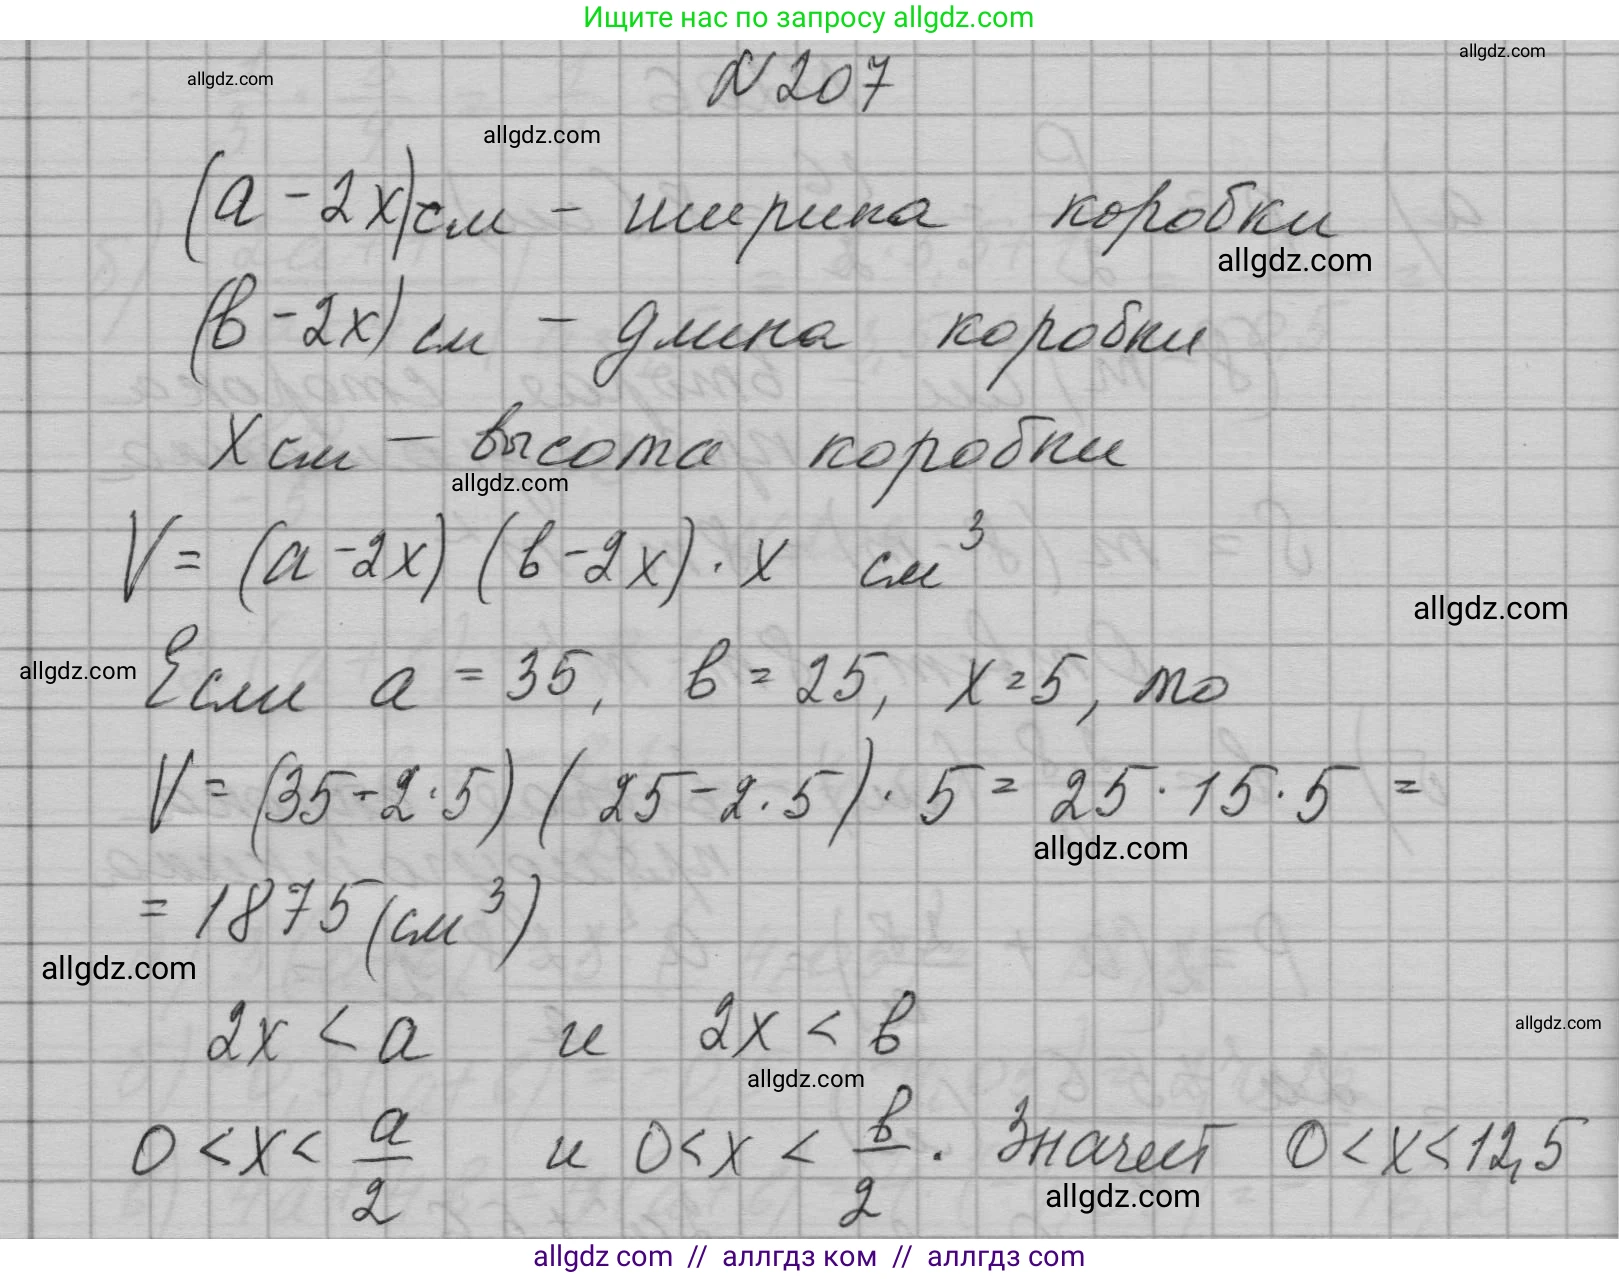 Ищите нас по запросу allgdz.com
N 207
allgdz.com
allgdz.com
allgdz.com
(a - 2x) см - ширина коробки
allgdz.com
(в - 2x) см - длина коробки
x см - высота коробки
allgdz.com
V = (a - 2x) (в - 2x) · x см³
allgdz.com
allgdz.com
Если a = 35, в = 25, x = 5, то
V = (35 - 2 · 5) (25 - 2 · 5) · 5 = 25 · 15 · 5 =
allgdz.com
= 1875 (см³)
allgdz.com
2x < a и 2x < в
allgdz.com
allgdz.com
0 < x < a/2 и 0 < x < в/2. Значит 0 < x < 12,5
allgdz.com
allgdz com // аллгдз ком // allgdz com